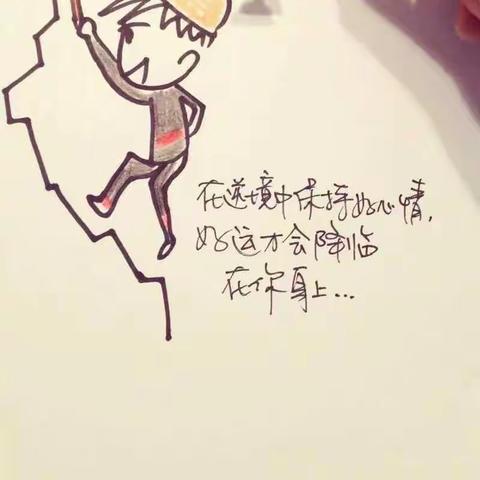 在逆境中保持好心情,
好运才会降临
在你身上...